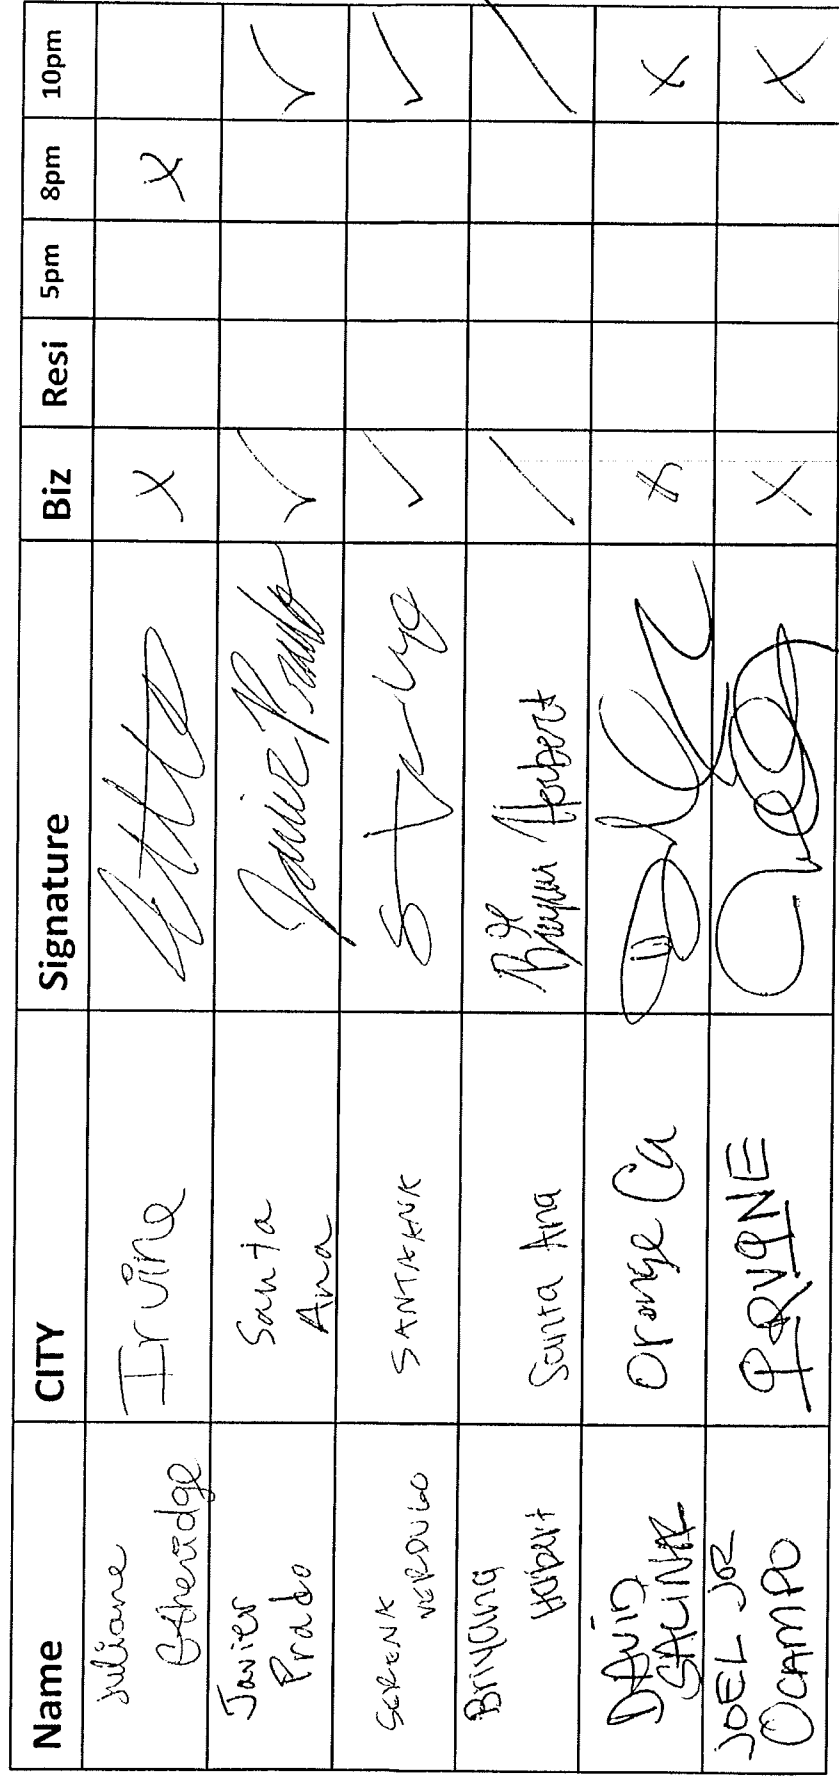 Name CITY Signature Biz Resi 5pm 8pm 10pm
Juliane
Etheridge Irvine X X
Javier
Prado Santa
Ana Javier Prado ✓ ✓
SERENA
VERDUGO SANTA ANA ✓ ✓
Briyana
Herbert Santa Ana Herbert / /
DAVID
SALINA Orange Ca X X
JOEL JR
OCAMPO IRVINE X X